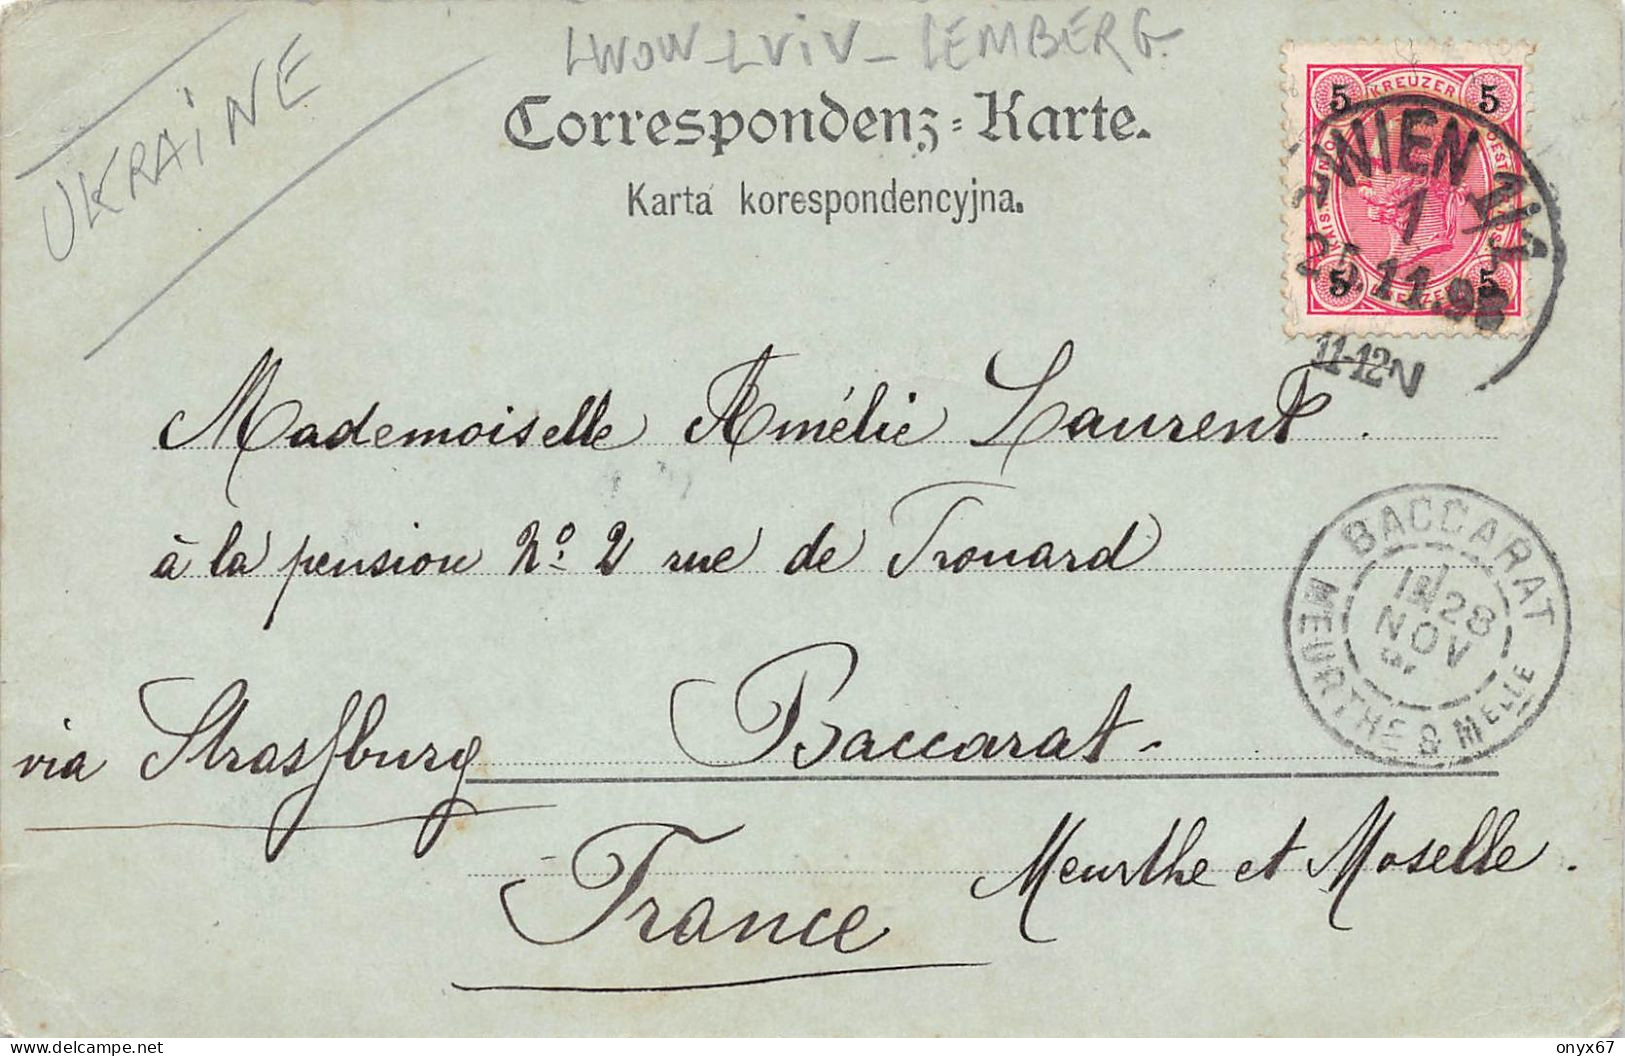 UKRAINE
LWOW-LVIV-LEMBERG
Correspondenz-Karte.
Karta korespondencyjna.
5 KREUZER 5
5 5
WIEN 1/1
1
25.11.98
11-12N
Mademoiselle Amélie Laurent.
à la pension Nº 2 rue de Trouard
via Strassburg Baccarat
France Meurthe et Moselle.
BACCARAT
28
NOV
MEURTHE & MELLE
onyx67